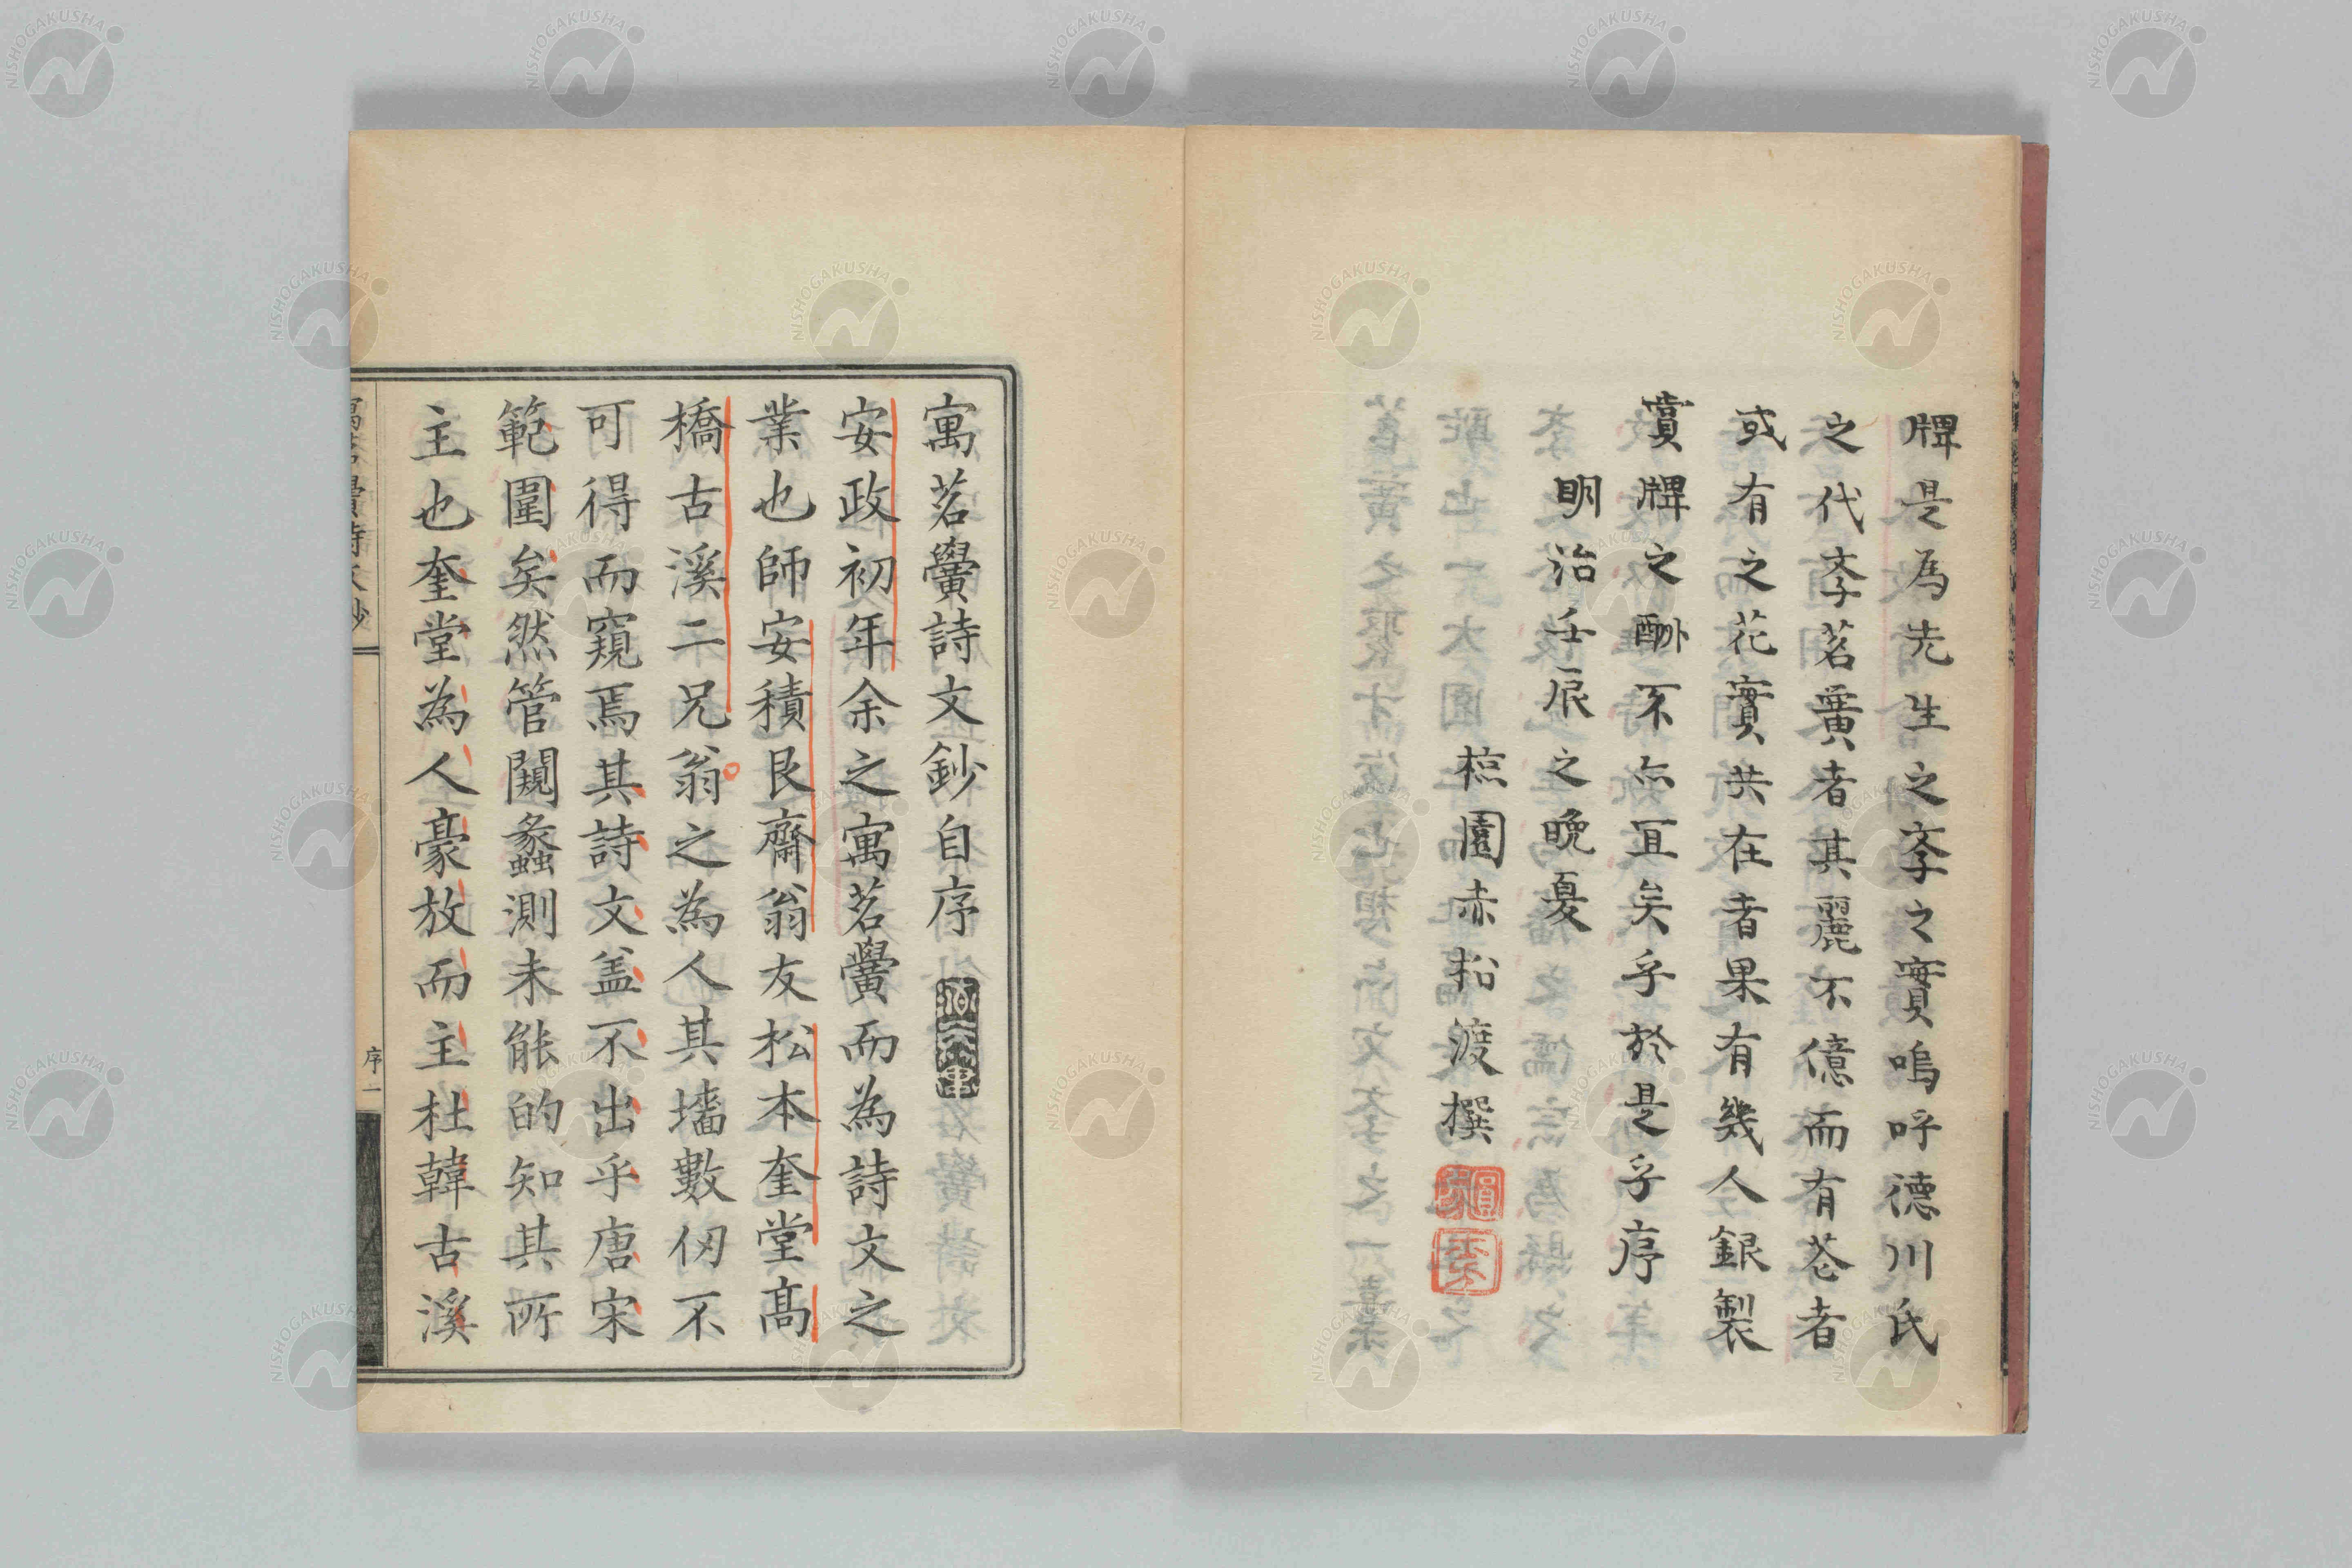 牌是為先生之李之實嗚呼德川氏
之代李茗黌者其麗不億而有苍者
或有之花實共在者果有幾人銀製
賞牌之酬不亦宜矣乎於是乎序
明治壬辰之晚夏
櫟園赤松渡撰
寓茗黌詩文鈔自序
安政初年余之寓茗黌而為詩文之
業也師安積艮齋翁友松本奎堂高
橋古溪二兄翁之為人其墻數仞不
可得而窺焉其詩文盖不出乎唐宋
範圍矣然管闚蠡測未能的知其所
主也奎堂為人豪放而主杜韓古溪
序一
NISHOGAKUSHA